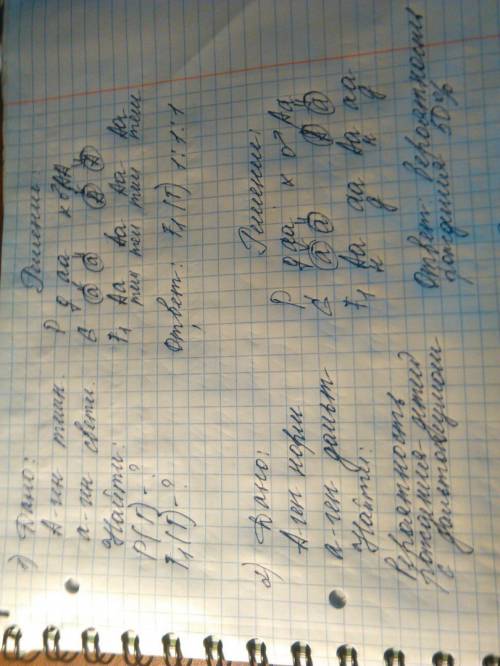 1) Дано:
А-ген темн.
а-ген светл.
Найти:
P(f)-?
F1(f)-?
Решение:
P ♀ аа х ♂ АА
G (а) (а) (А) (А)
F1 Аа Аа Аа Аа
тем тем тем тем
Ответ: F1(f) 1:1:1:1
2) Дано:
А ген норм
а-ген дальт-
Найти:
Вероятность
рождения детей
с дальтонизмом
Решение:
P ♀ аа х ♂ Аа
G (а) (а) (А) (а)
F1 Аа аа Аа аа
Ответ: Вероятность
рождения 50%